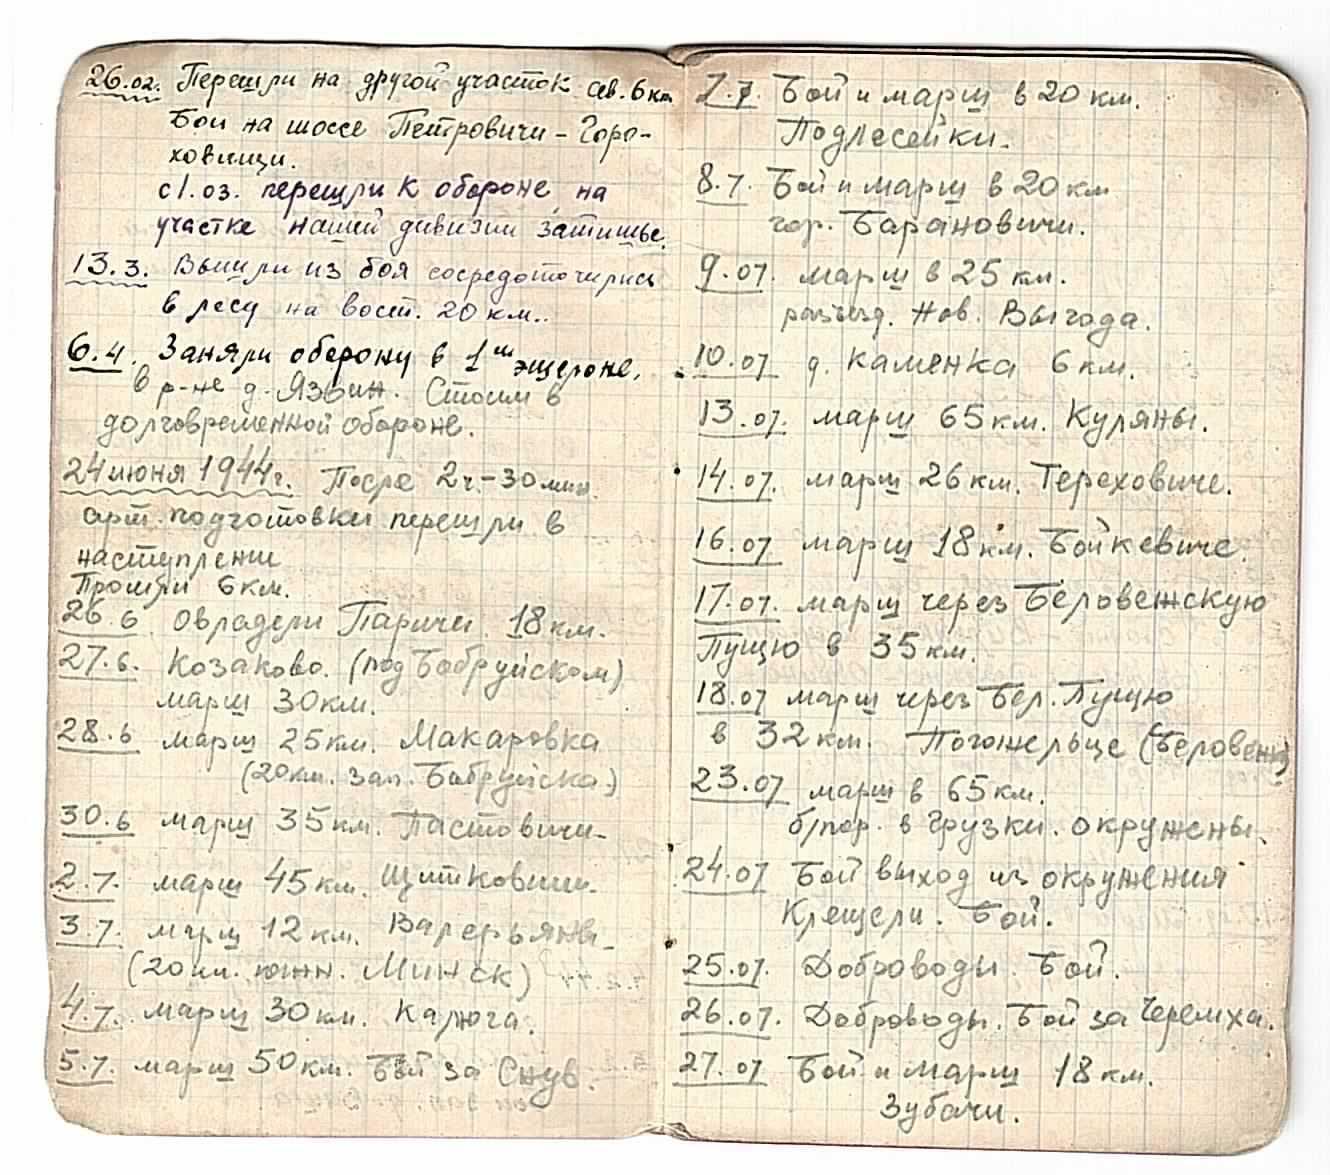 26.02. Перешли на другой участок сев. 6 км
Бои на шоссе Петровичи - Горо-
ховищи.
с 1.03. перешли к обороне, на
участке нашей дивизии затишье.
13.3. Вышли из боя сосредоточились
в лесу на вост. 20 км..
6.4. Заняли оборону в 1ш эшелоне,
в р-не д. Язвин. Стоим в
долговременной обороне.
24 июня 1944 г. После 2ч-30 мин
арт. подготовки перешли в
наступлени
Прошли 6 км.
26 6 Овладели Паричи 18 км.
27.6. Козаково. (под Бобруйском)
марш 30 км.
28.6 марш 25 км. Макаровка
(20 км. зап. Бобруйска)
30.6 марш 35 км. Пастовичи-
2.7. марш 45 км. Щитковичи-
3.7. марш 12 км. Валерьяны-
(20 км. южн. Минск)
4.7. марш 30 км. Калюга.
5.7. марш 50 км. Бой за Снув.
7.7. Бой и марш в 20 км.
Подлесейки.
8.7. Бой и марш в 20 км
гор. Барановичи.
9.07. марш в 25 км.
разъезд. Нов. Выгода.
10.07 д. Каменка 6 км.
13.07. марш 65 км. Куляны.
14.07. марш 26 км. Тереховиче.
16.07 марш 18 км. Бойкевиче.
17.07. марш через Беловежскую
Пущю в 35 км.
18.07 марш через Бел. Пущю
в 32 км. Погожельце (Беловеж)
23.07 марш в 65 км.
б/пер. в грузки. окружены.
24.07 Бой выход из окружения
Клещели. Бой.
25.07. Доброводы. Бой.
26.07. Доброводы. Бой за Черемха.
27.07 Бой и марш 18 км.
Зубачи.